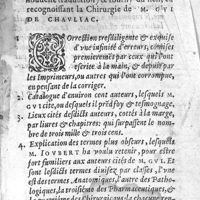 reconnoissant la Chirurgie de M. GVI
DE CHAVLIAC.
1 Correction tresdiligente & exquise
d'vne infinité d'erreurs, comises
premierement par ceux qui l'ont
escrite à la main, & depuis par
les Imprimeurs, ou autres qui l'ont corrompue,
en pensant de la corriger.
2 Catalogue d'enuiron cent auteurs, lesquels M.
GVI cite, ou desquels il prẽd foy & tesmoignage.
3 Lieux cités desdits auteurs, cottés à la marge,
par liures & chapitres: qui surpassent le nom-
bre de trois mille & trois cens.
4 Explication des termes plus obscurs, lesquels
M. IOVBERT ha peu retenir, pour estre
fort familiers aux auteurs cités de M. GVI. Et
sont lesdits termes diuisez par classes, l'vne
est des termes, Anatomiques, l'autre des Patho-
logiques, la troisiéme des Pharmaceutiques, &